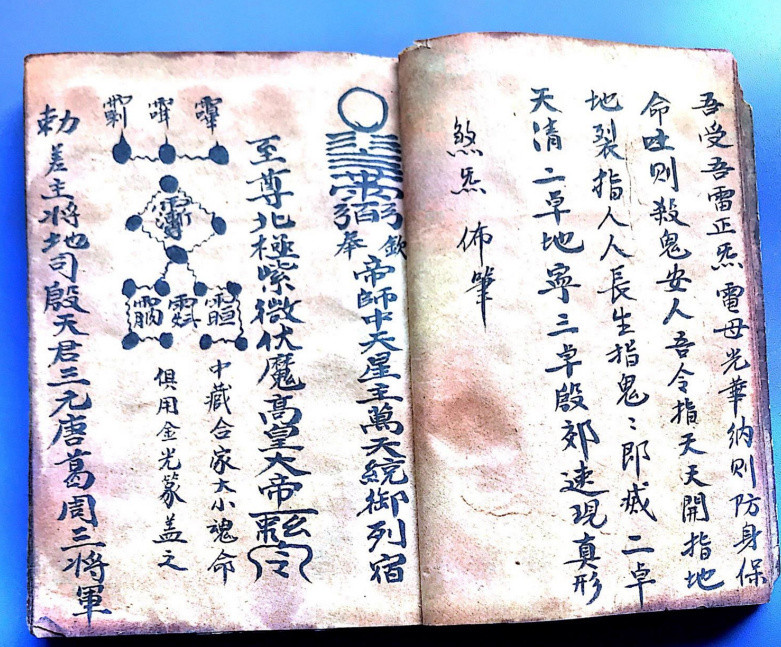 吾受吾雷正炁電母光華納則防身保
命吐則殺鬼安人吾令指天天開指地
地裂指人人長生指鬼〻即滅二卓
天清二卓地寧三卓殷郊速現真形
煞炁佈筆
欽奉
帝師中天星主萬天統御列宿
至尊北極紫微伏魔高皇大帝
令
中藏合家大小魂命
俱用金光篆盖之
勅差主将地司殷天君三元唐葛周三将軍